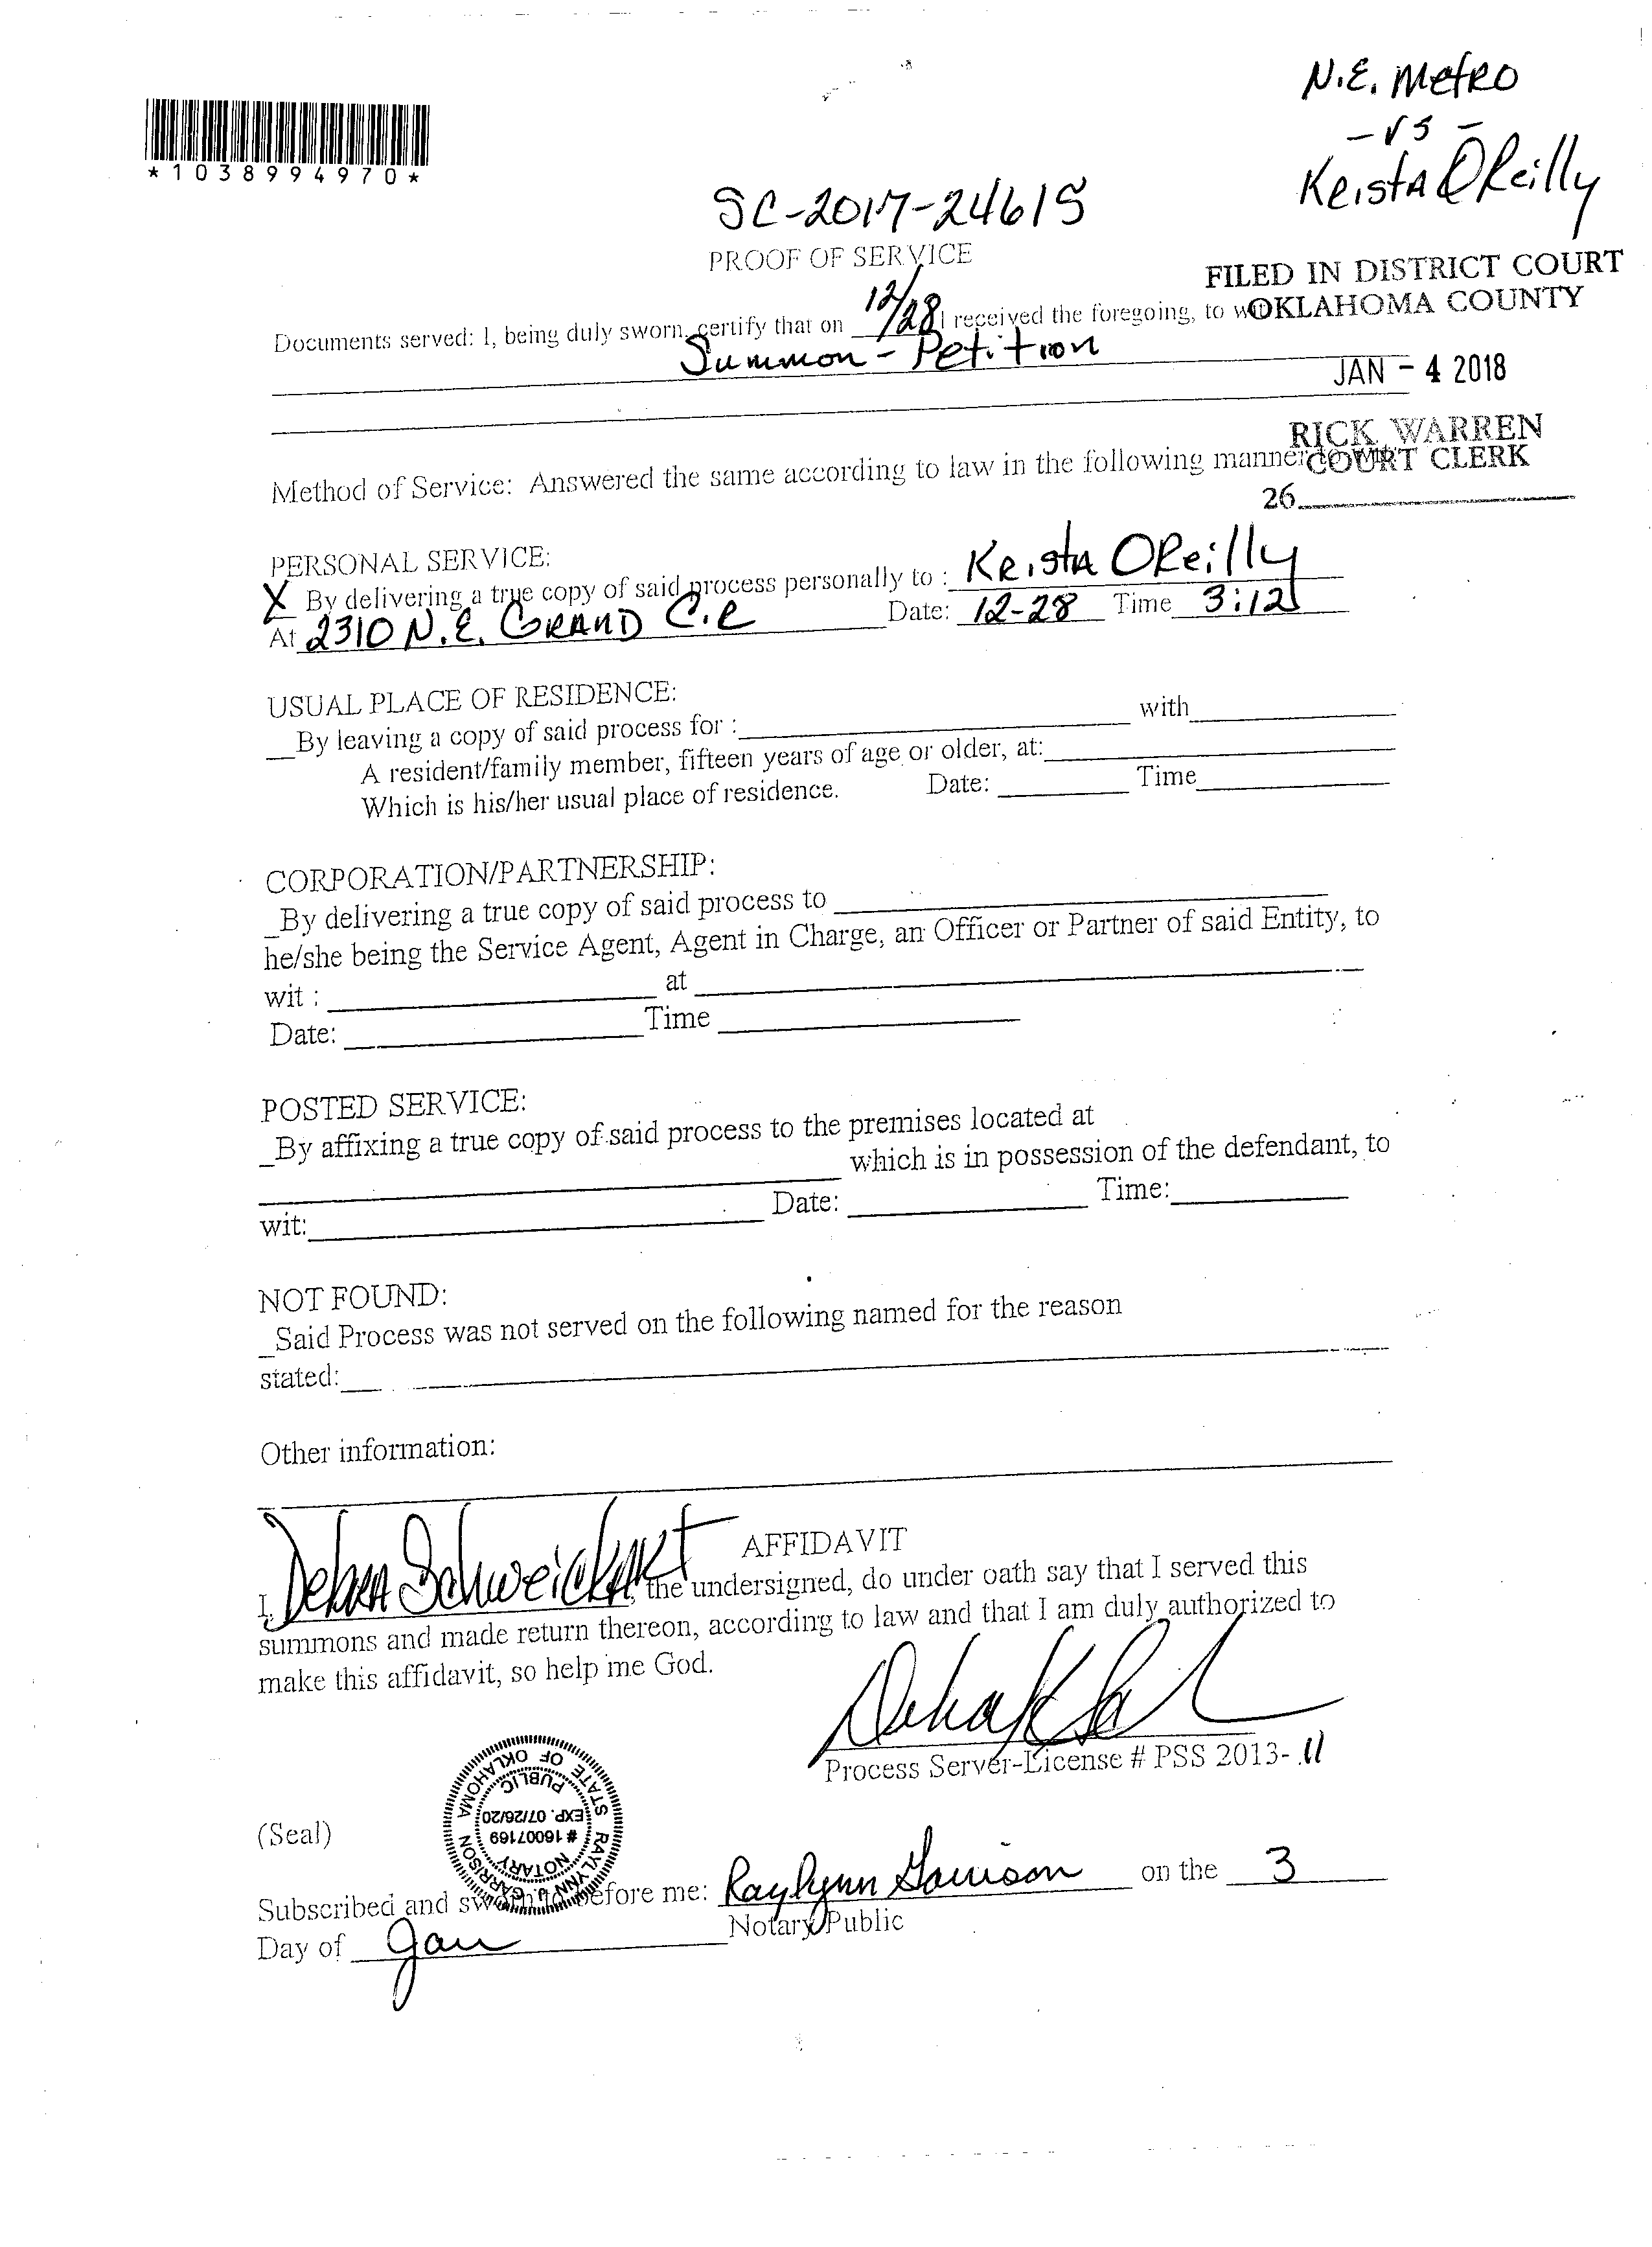 N.E. Metro
-vs-
Keista OReilly
*1038994970*
SC-2017-24615
PROOF OF SERVICE
FILED IN DISTRICT COURT
OKLAHOMA COUNTY
Documents served: I, being duly sworn, certify that on 12/28 I received the foregoing, to wit:
Summon - Petition
JAN - 4 2018
RICK WARREN
COURT CLERK
Method of Service: Answered the same according to law in the following manner to wit:
26
PERSONAL SERVICE:
X By delivering a true copy of said process personally to : Keista OReilly
At 2310 N.E. GRAND Cir Date: 12-28 Time 3:12
USUAL PLACE OF RESIDENCE:
__By leaving a copy of said process for :__________ with__________
A resident/family member, fifteen years of age or older, at:__________
Which is his/her usual place of residence. Date: __________ Time__________
CORPORATION/PARTNERSHIP:
_By delivering a true copy of said process to __________
he/she being the Service Agent, Agent in Charge, an Officer or Partner of said Entity, to
wit : __________ at __________
Date: __________ Time __________
POSTED SERVICE:
_By affixing a true copy of said process to the premises located at
__________ which is in possession of the defendant, to
wit:__________ Date: __________ Time:__________
NOT FOUND:
_Said Process was not served on the following named for the reason
stated:__________
Other information:
AFFIDAVIT
I, Debra Schweickart the undersigned, do under oath say that I served this
summons and made return thereon, according to law and that I am duly authorized to
make this affidavit, so help me God.
Process Server-License # PSS 2013- 11
RAYLYNN J. GARRISON
NOTARY
# 16007169
EXP. 07/26/20
PUBLIC
STATE OF OKLAHOMA
(Seal)
Subscribed and sworn to before me: Raylynn Garrison on the 3
Notary Public
Day of Jan